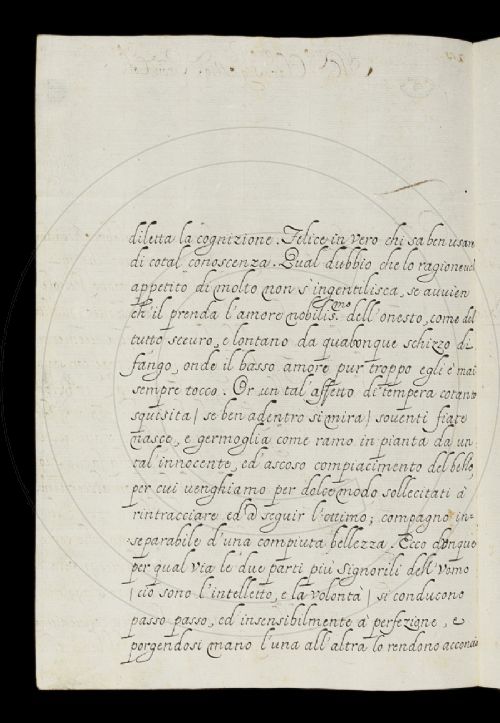 diletta la cognizione. Felice in vero chi sa ben usare
di cotal conoscenza. Qual dubbio che lo ragionevol
appetito di molto non s'ingentilisca, se avvien
ch'il prenda l'amore nobilis.mo dell'onesto, come del
tutto scevro, e lontano da qualonque schizzo di
fango, onde il basso amore pur troppo egli è mai
sempre tocco. Or un tal'affetto di tempera cotanto
squisita (se ben adentro si mira) soventi fiate
nasce, e germoglia come ramo in pianta da un
tal innocente, ed'ascoso compiacimento del bello,
per cui venghiamo per dolce modo sollecitati à
rintracciare ed'à seguir l'ottimo; compagno in=
separabile d'una compiuta bellezza. Ecco donque
per qual via le due parti più signorili dell'Vomo
(ciò sono l'intelletto, e la volontà) si conducono
passo passo, ed insensibilmente à perfezione, e
porgendosi mano l'una all'altra lo rendono acconcio